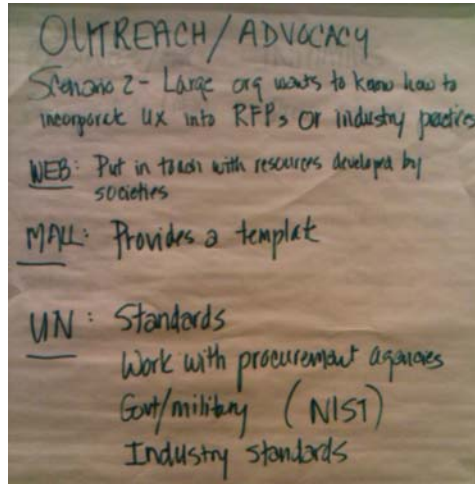 OUTREACH/ADVOCACY
Scenario 2 - Large org wants to know how to
incorporate UX into RFPs or industry practices
WEB: Put in touch with resources developed by
societies
MALL: Provides a template
UN: Standards
Work with procurement agencies
Govt/military (NIST)
Industry standards